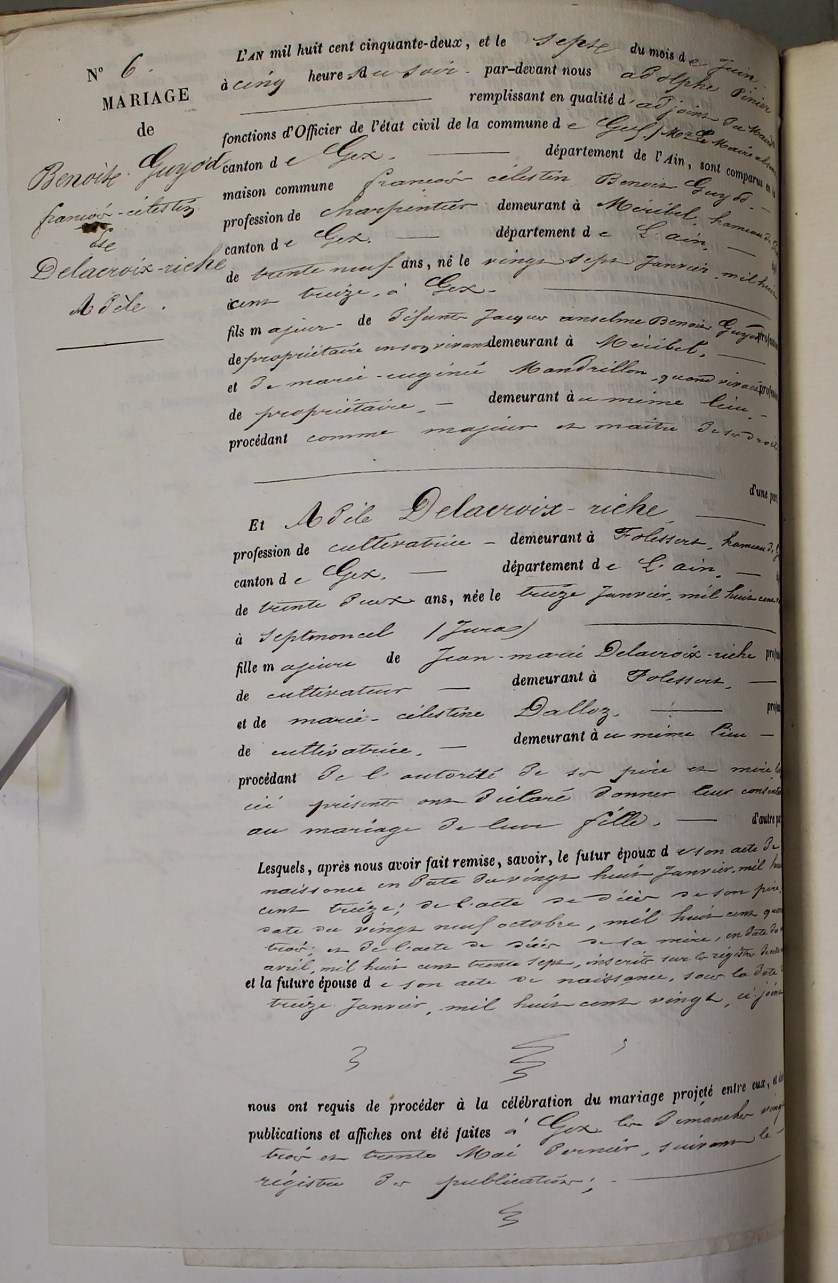 N° 6.
MARIAGE
de
Benoist Guyod
françois-célestin
et
Delacroix-riche
Adèle.
L'AN mil huit cent cinquante-deux, et le sept du mois de Juin
à cinq heures du soir par-devant nous adolphe
remplissant en qualité d'adjoint du maire
fonctions d'Officier de l'état civil de la commune de Gex
canton de Gex. département de l'Ain, sont comparus en la
maison commune françois célestin Benoist Guyod
profession de charpentier demeurant à Méribel, hameau de
canton de Gex. département de L'ain,
de trente neuf ans, né le vingt sept Janvier mil huit
cent treize, à Gex.
fils majeur de défunts Jacques anselme Benoist Guyod
de propriétaire en son vivant demeurant à Méribel,
et de marie-eugénie Mandrillon, quand vivait
de propriétaire, demeurant au même lieu,
procédant comme majeur et maître de ses droits
d'une part
Et Adèle Delacroix-riche
profession de cultivatrice demeurant à Folessert, hameau de
canton de Gex. département de L'ain,
de trente deux ans, née le treize Janvier, mil huit cent
à Septmoncel (Jura)
fille majeure de Jean-marie Delacroix-riche
de cultivateur demeurant à Folessert,
et de marie-célestine Dalloz.
de cultivatrice, demeurant au même lieu
procédant de l'autorité de ses père et mère
ici présents ont déclaré donner leur
au mariage de leur fille, d'autre part
Lesquels, après nous avoir fait remise, savoir, le futur époux de son acte de
naissance en date du vingt huit Janvier, mil huit
cent treize; de l'acte de décès de son père,
date du vingt neuf octobre, mil huit cent
trois; et de l'acte de décès de sa mère, en date du
avril, mil huit cent trente sept, inscrits sur les registres
et la future épouse de son acte de naissance, sous la date
treize Janvier, mil huit cent vingt, ci joint
nous ont requis de procéder à la célébration du mariage projeté entre eux,
publications et affiches ont été faites à Gex les dimanches vingt
trois et trente Mai dernier, suivant le
registre de publications;